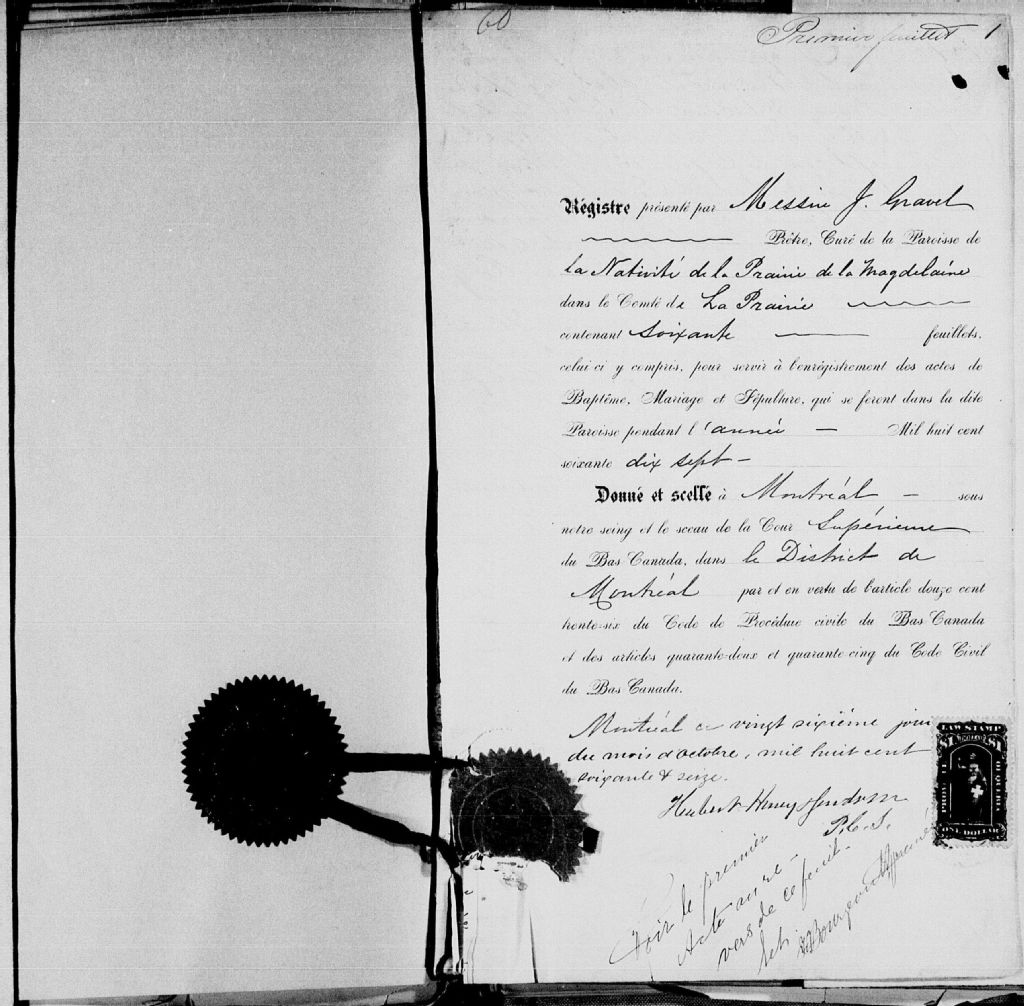 60
Premier feuillet 1
Régistre présenté par Messire J. Gravel
Prêtre, Curé de la Paroisse de
la Nativité de la Prairie de la Magdelaine
dans le Comté de La Prairie
contenant Soixante feuillets,
celui-ci y compris, pour servir à l'enrégistrement des actes de
Baptême, Mariage et Sépulture, qui se feront dans la dite
Paroisse pendant l'année — Mil huit cent
soixante dix sept —
Donné et scellé à Montréal — sous
notre seing et le sceau de la Cour Supérieure
du Bas Canada, dans le District de
Montréal par et en vertu de l'article douze cent
trente-six du Code de Procédure civile du Bas Canada
et des articles quarante-deux et quarante-cinq du Code Civil
du Bas Canada.
Montréal ce vingt sixième jour
du mois d'octobre, mil huit cent
soixante & seize.
Hubert Henry
P.C.S.
LAW STAMP
$1 $1
PROV. DE QUEBEC
ONE DOLLAR
Voir le premier
Acte au re-
vers de ce feuil-
let. Bourgeault